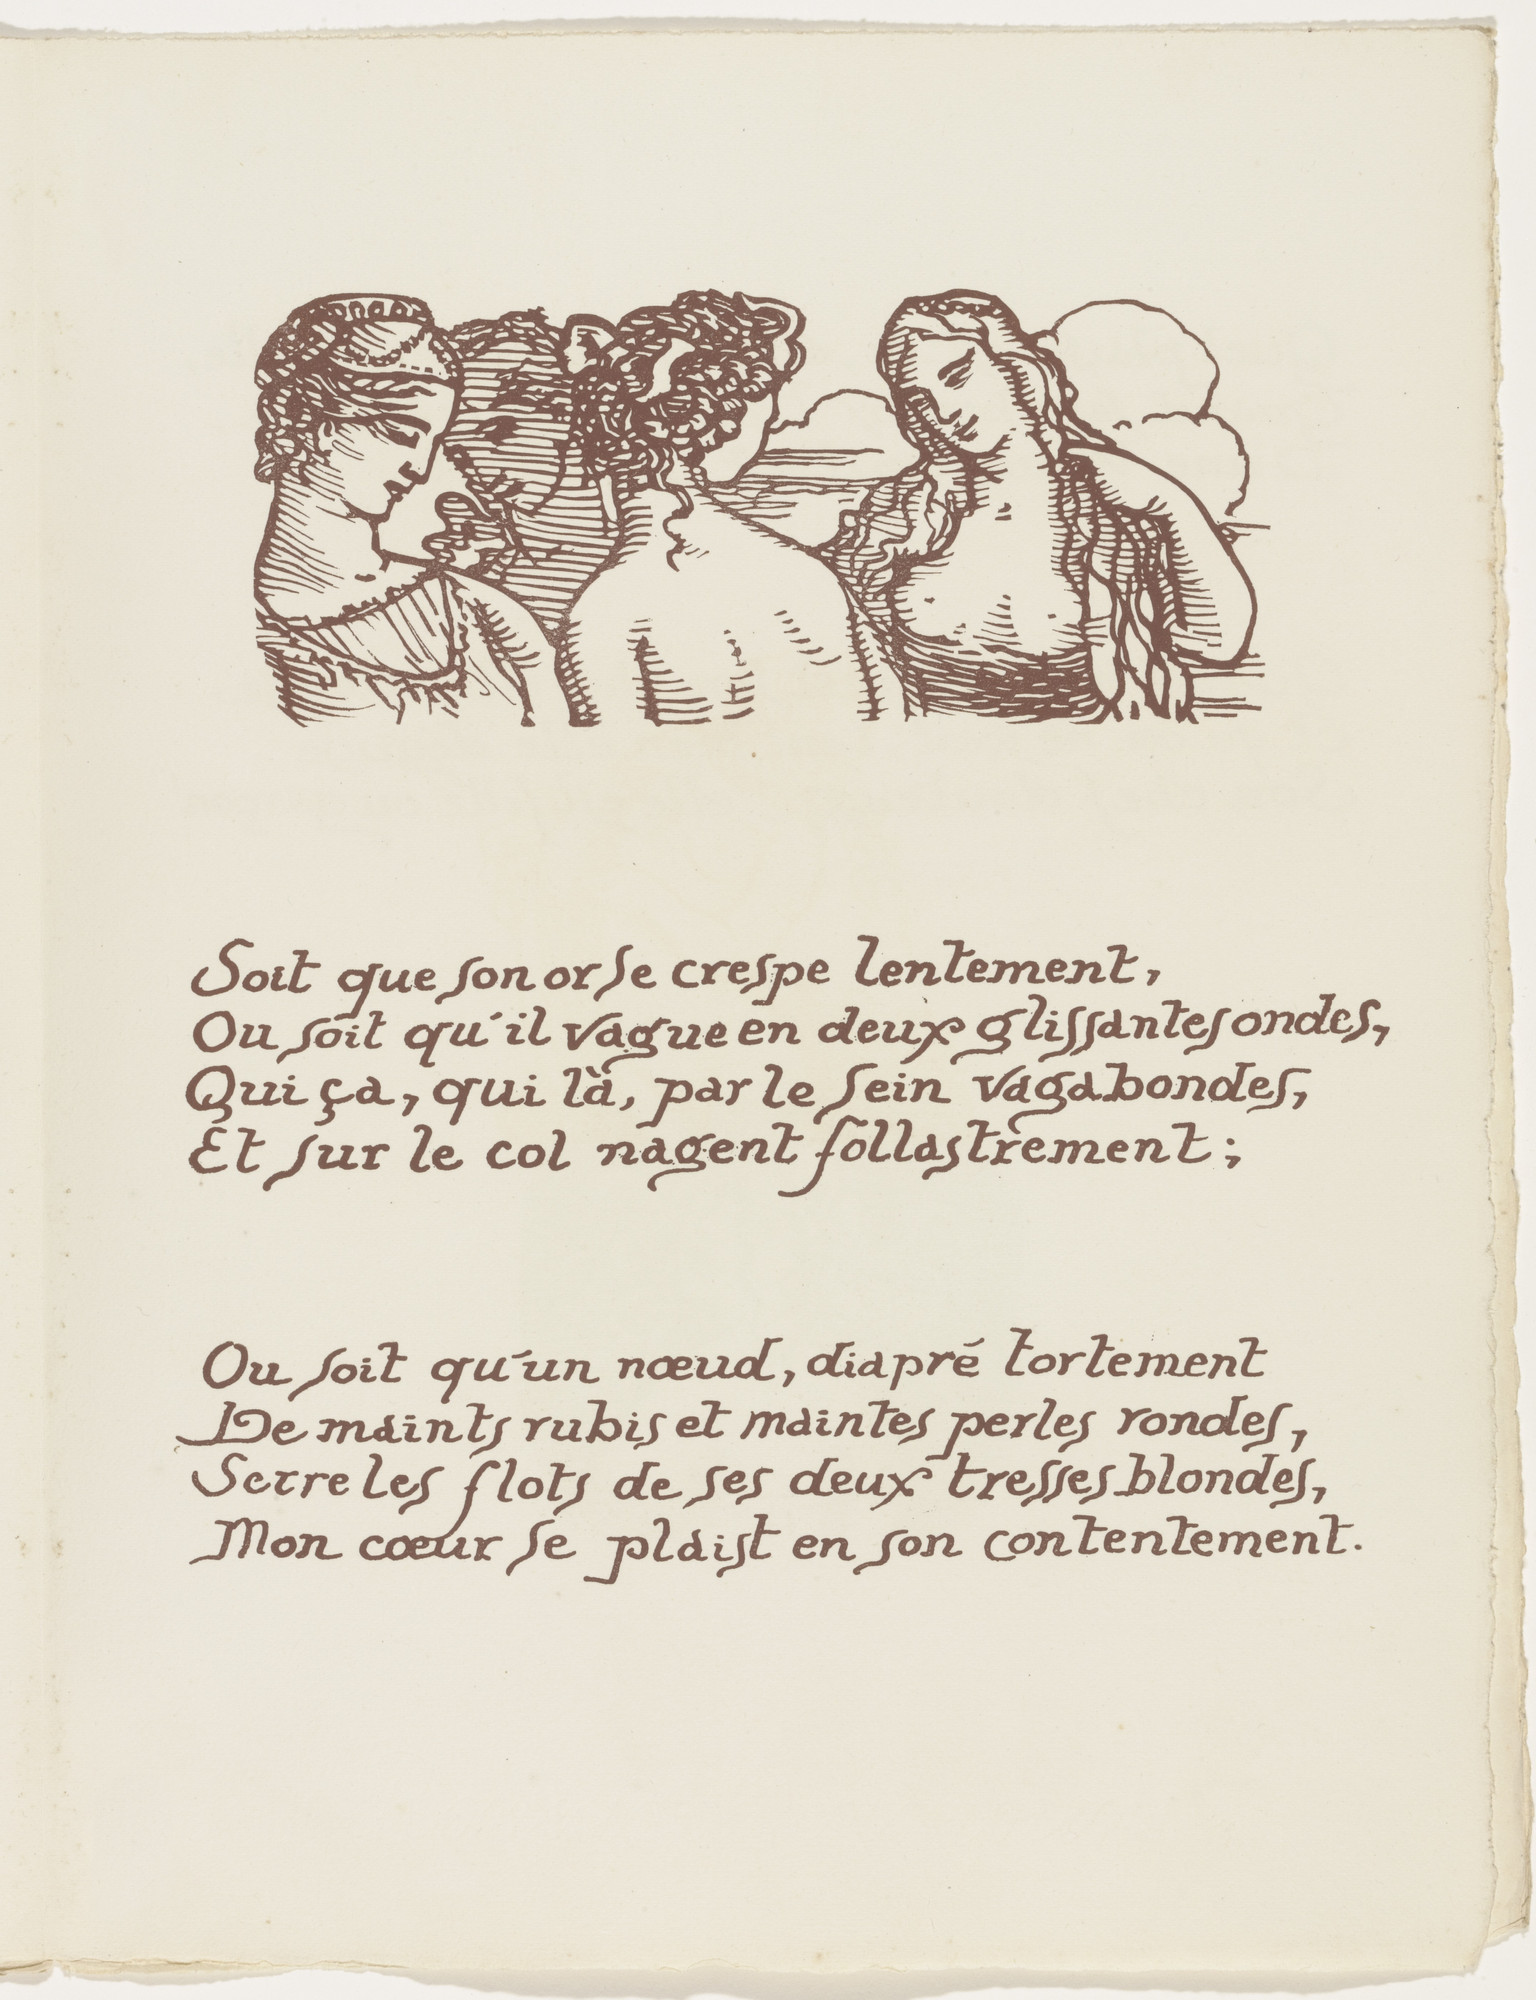 Soit que son or se crespe lentement,
Ou soit qu'il vague en deux glissantes ondes,
Qui ça, qui là, par le sein vagabondes,
Et sur le col nagent follastrement;
Ou soit qu'un nœud, diapré tortement
De maints rubis et maintes perles rondes,
Serre les flots de ses deux tresses blondes,
Mon cœur se plaist en son contentement.